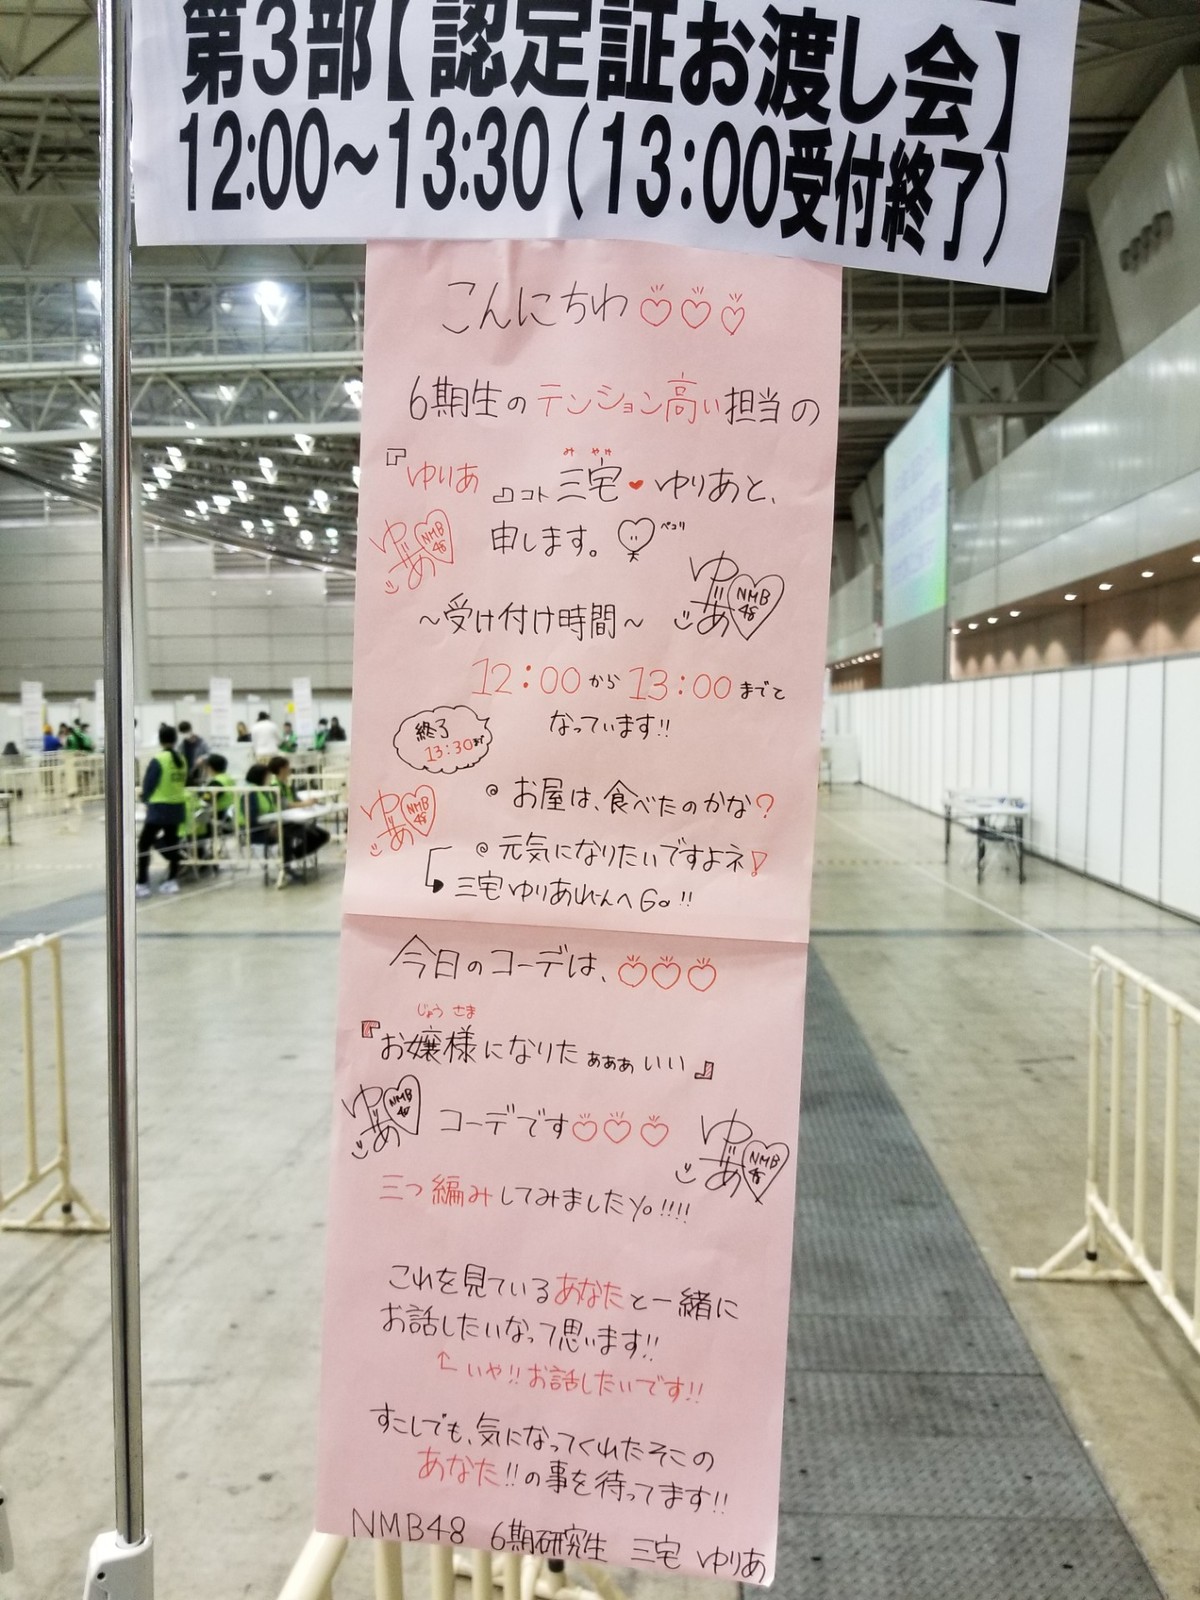 第3部【認定証お渡し会】
12:00~13:30(13:00受付終了)
こんにちわ
6期生のテンション高い担当の
みやけ
『ゆりあ』コト三宅♥ゆりあと、
申します。 ペコリ
ゆりあ NMB48
ゆりあ NMB48
~受け付け時間~
12:00から13:00までと
なっています!!
終了
13:30まで
お昼は、食べたのかな?
ゆりあ NMB48
元気になりたいですよネ!
三宅ゆりあれーんへGo!!
今日のコーデは、
じょう さま
『お嬢様になりたぁぁぁいい』
ゆりあ NMB48
コーデです
ゆりあ NMB48
三つ編みしてみましたyo!!!!
これを見ているあなたと一緒に
お話したいなって思います!!
←いや!!お話したいです!!
すこしでも、気になってくれたそこの
あなた!!の事を待ってます!!
NMB48 6期研究生 三宅 ゆりあ